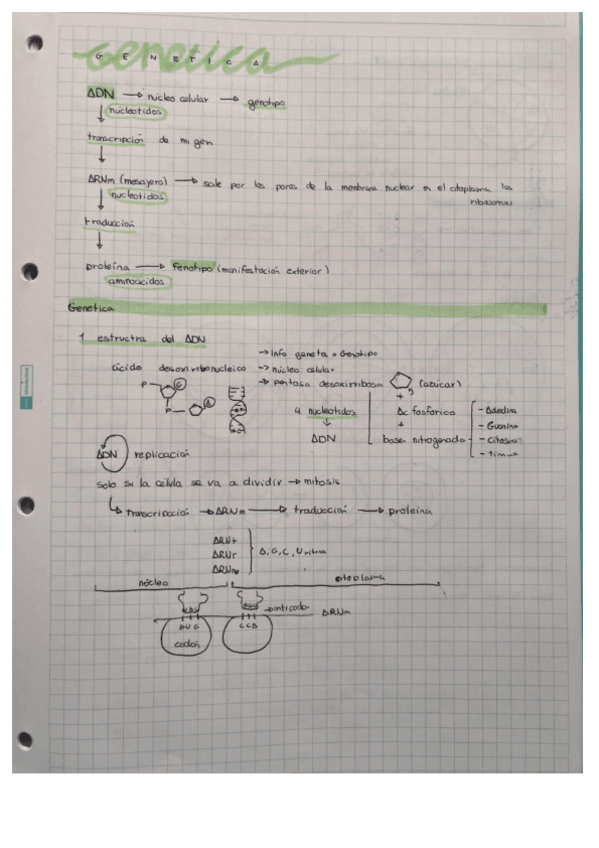 Genetica
GENETICA
ADN → núcleo celular → genotipo
nucleotidos
transcripción de un gen
ARNm (mesajero) → sale por los poros de la membrana nuclear en el citoplasma los
ribosomas
nucleotidos
traduccion
proteina → Fenotipo (manifestación exterior)
aminoacidos
Genetica
1 estructra del ADN
→ Info geneta = Genotipo
ácido desoxirribonucleico → núcleo celular
→ pentosa desoxirribosa (azucar)
P G
P A
+
4 nucleotidos Ac fosforico
↓ +
ADN base nitrogenada
- Adenina
- Guanina
- Citosina
- timina
ADN replicación
solo si la célula se va a dividir → mitosis
transcripcion → ARNm → traducción → proteina
ARNt
ARNr
ARNm
A, G, C, Uracilo
núcleo citoplasma
anticodon ARNm
AUG CCA
codon